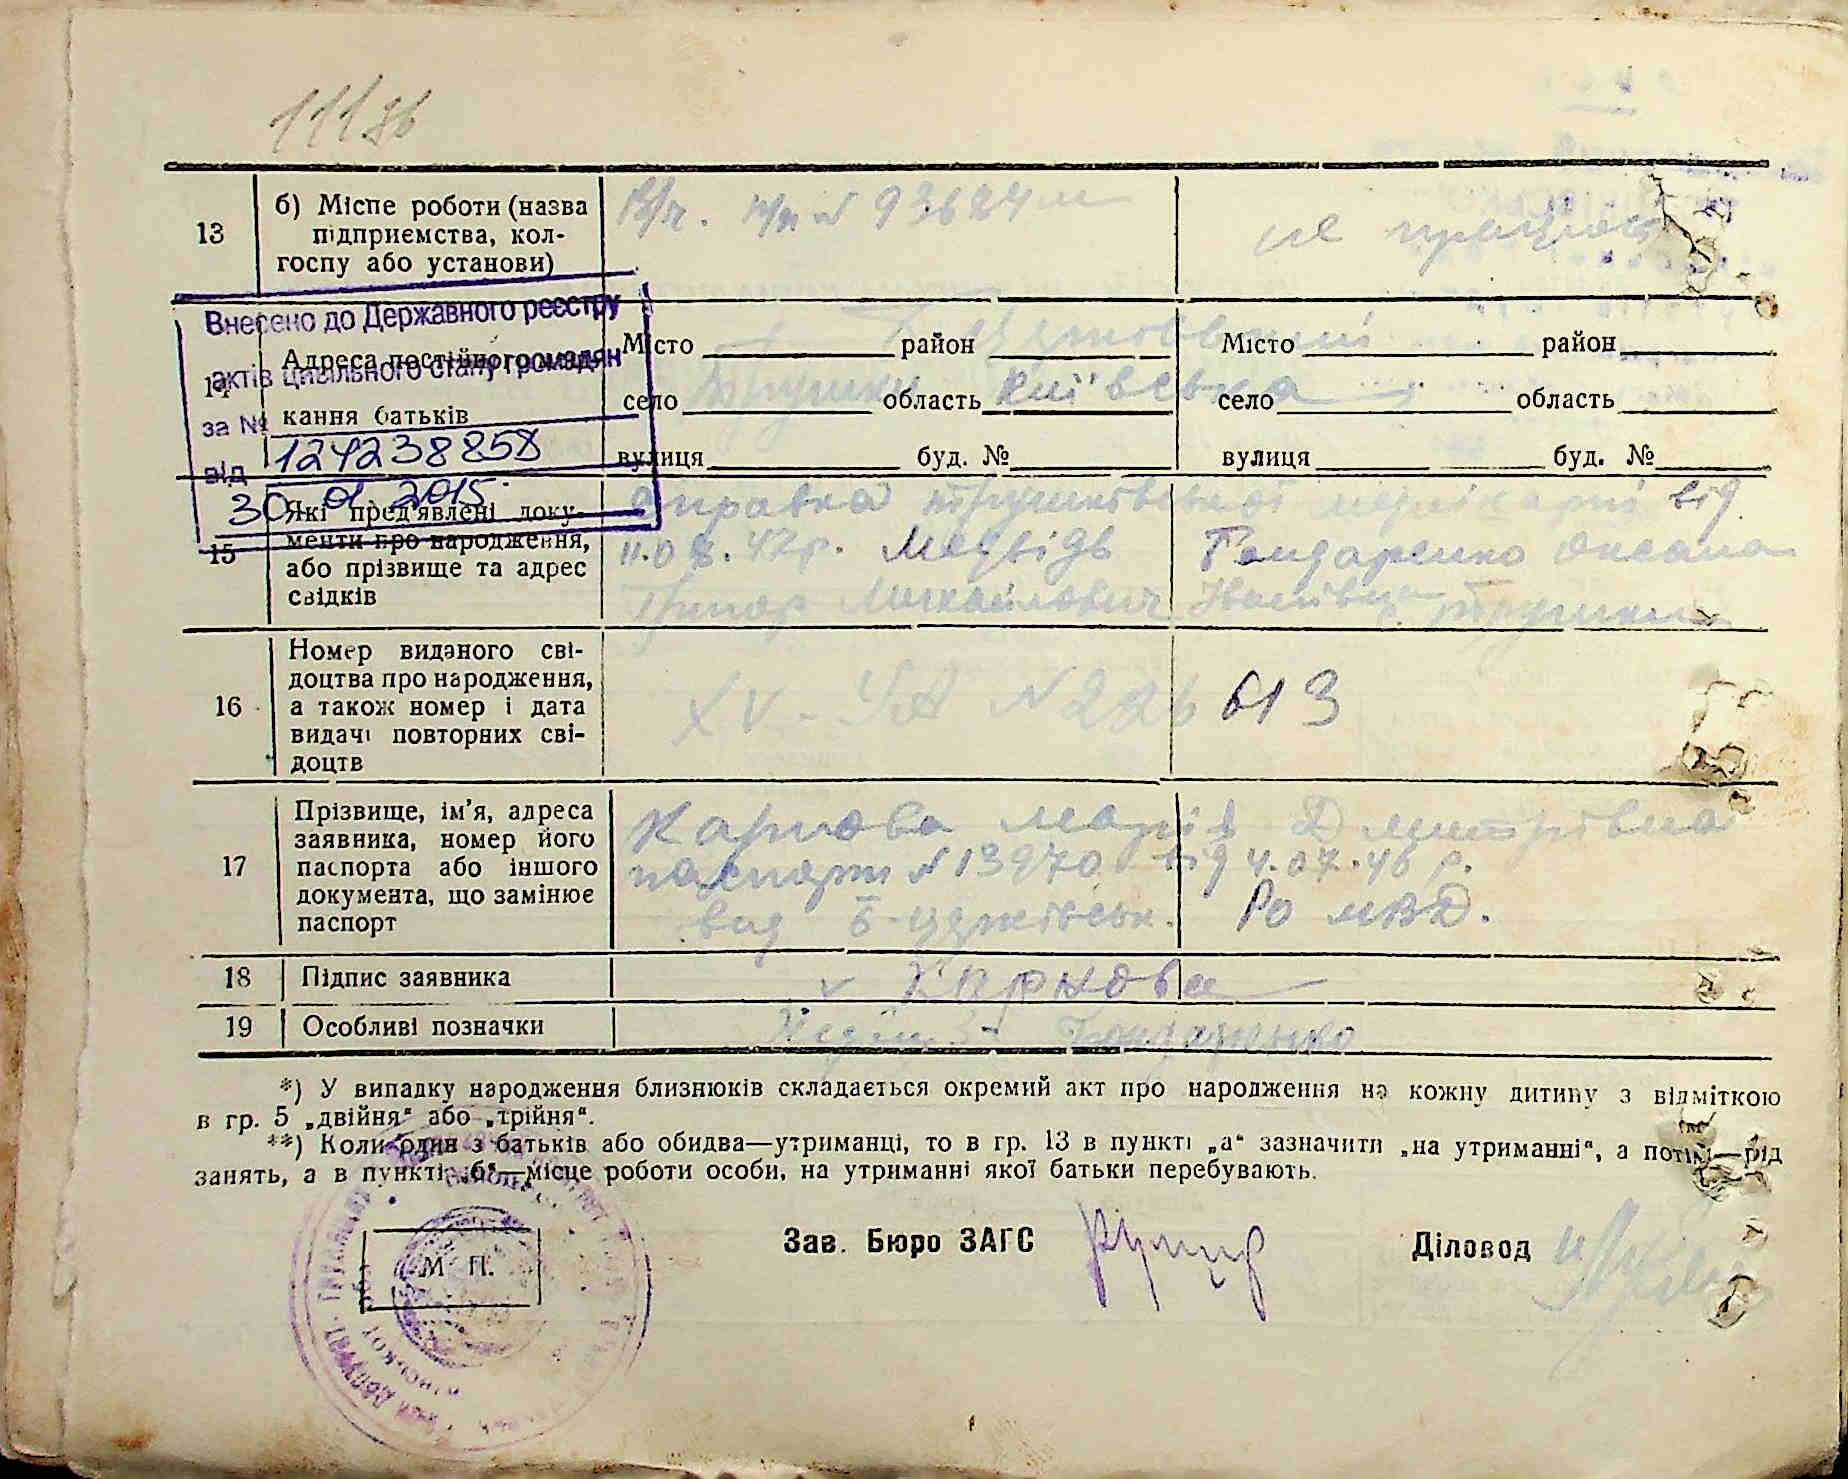 13
б) Місце роботи (назва
підприємства, кол-
госпу або установи)
не працює
Внесено до Державного реєстру
актів цивільного стану громадян
за №
124238858
від
30 01 2015.
14
Адреса постійного
кання батьків
Місто район
село область Київська
вулиця буд. №
Місто район
село область
вулиця буд. №
15
Які пред'явлені доку-
менти про народження,
або прізвище та адрес
свідків
справка від
11.08.47р. Медвідь Бондаренко Оксана
Михайлович Трушки
16
Номер виданого сві-
доцтва про народження,
а також номер і дата
видачі повторних сві-
доцтв
XV-УА №226613
17
Прізвище, ім'я, адреса
заявника, номер його
паспорта або іншого
документа, що замінює
паспорт
Карпова Марія Дмитрівна
паспорт №13970 від 4.07.46 р.
вид Б-Церківськ. РО МВД.
18
Підпис заявника
Карпова
19
Особливі позначки
Бондаренко
*) У випадку народження близнюків складається окремий акт про народження на кожну дитину з відміткою
в гр. 5 „двійня“ або „трійня“.
**) Коли один з батьків або обидва—утриманці, то в гр. 13 в пункті „а“ зазначити „на утриманні“, а потім—рід
занять, а в пункті „б“—місце роботи особи, на утриманні якої батьки перебувають.
М П.
Зав. Бюро ЗАГС
Діловод